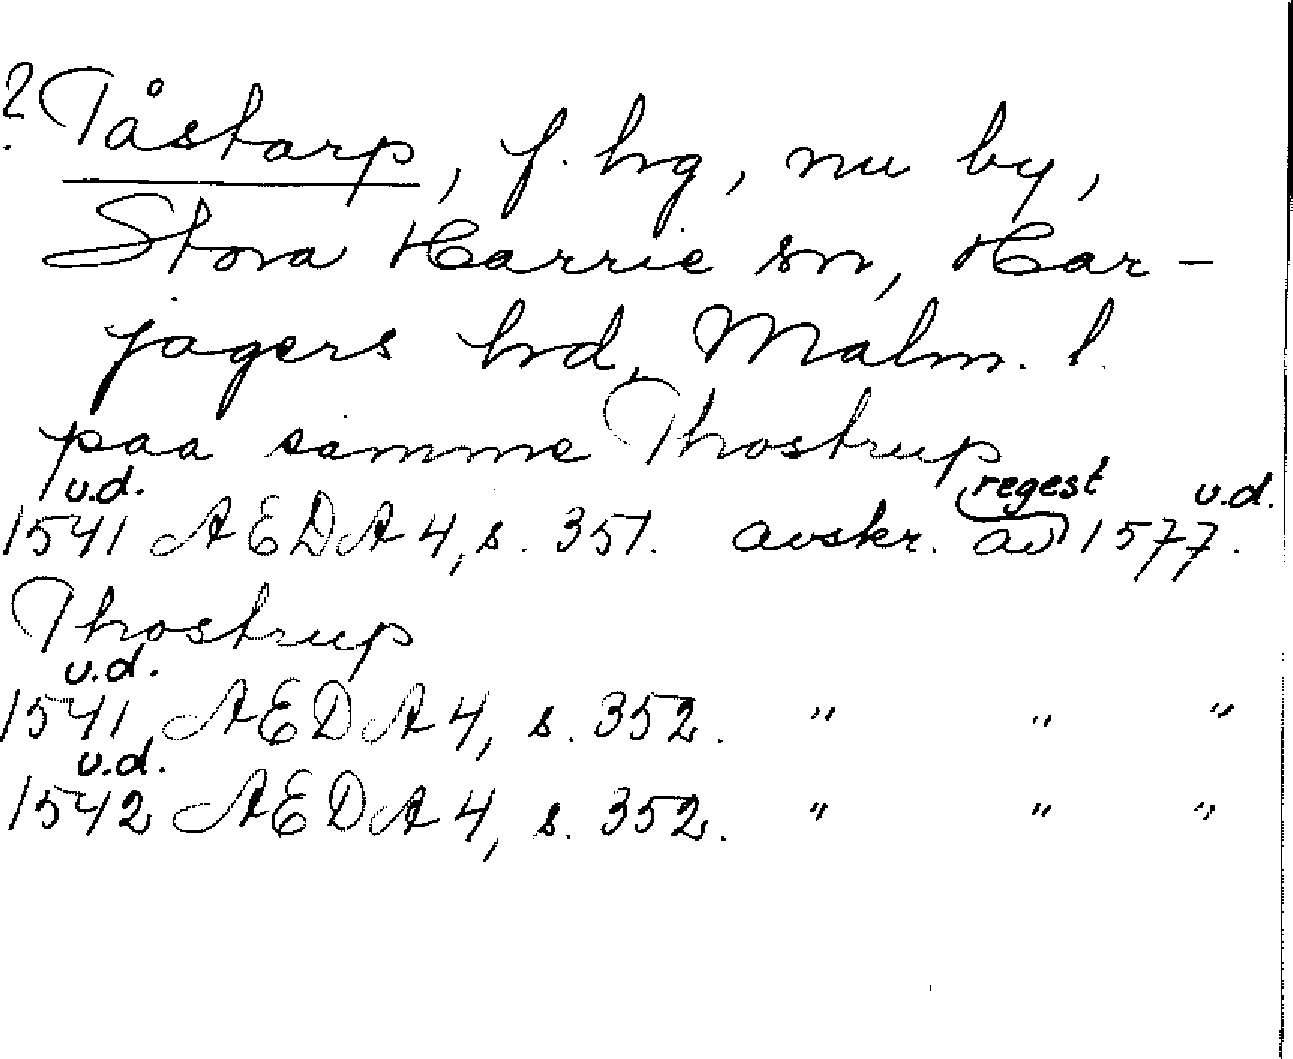 ? Tåstarp, f. hg, nu by,
Stora Harrie sn, Har-
jagers hd, Malm. l.
paa samme Thostrup
u.d. regest u.d.
1541 AEDA4, s. 351. avskr. av 1577.
Thostrup
u.d.
1541 AEDA4, s. 352. " " "
u.d.
1542 AEDA4, s. 352. " " "